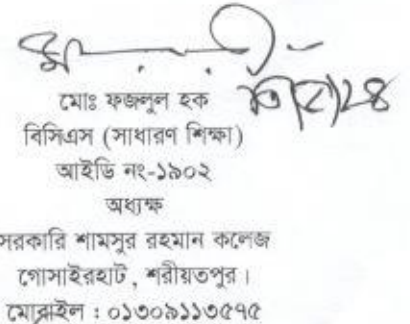 মোঃ ফজলুল হক
বিসিএস (সাধারণ শিক্ষা)
আইডি নং-১৯০২
অধ্যক্ষ
সরকারি শামসুর রহমান কলেজ
গোসাইরহাট, শরীয়তপুর।
মোবাইল : ০১৩০৯১১৩৫৭৫